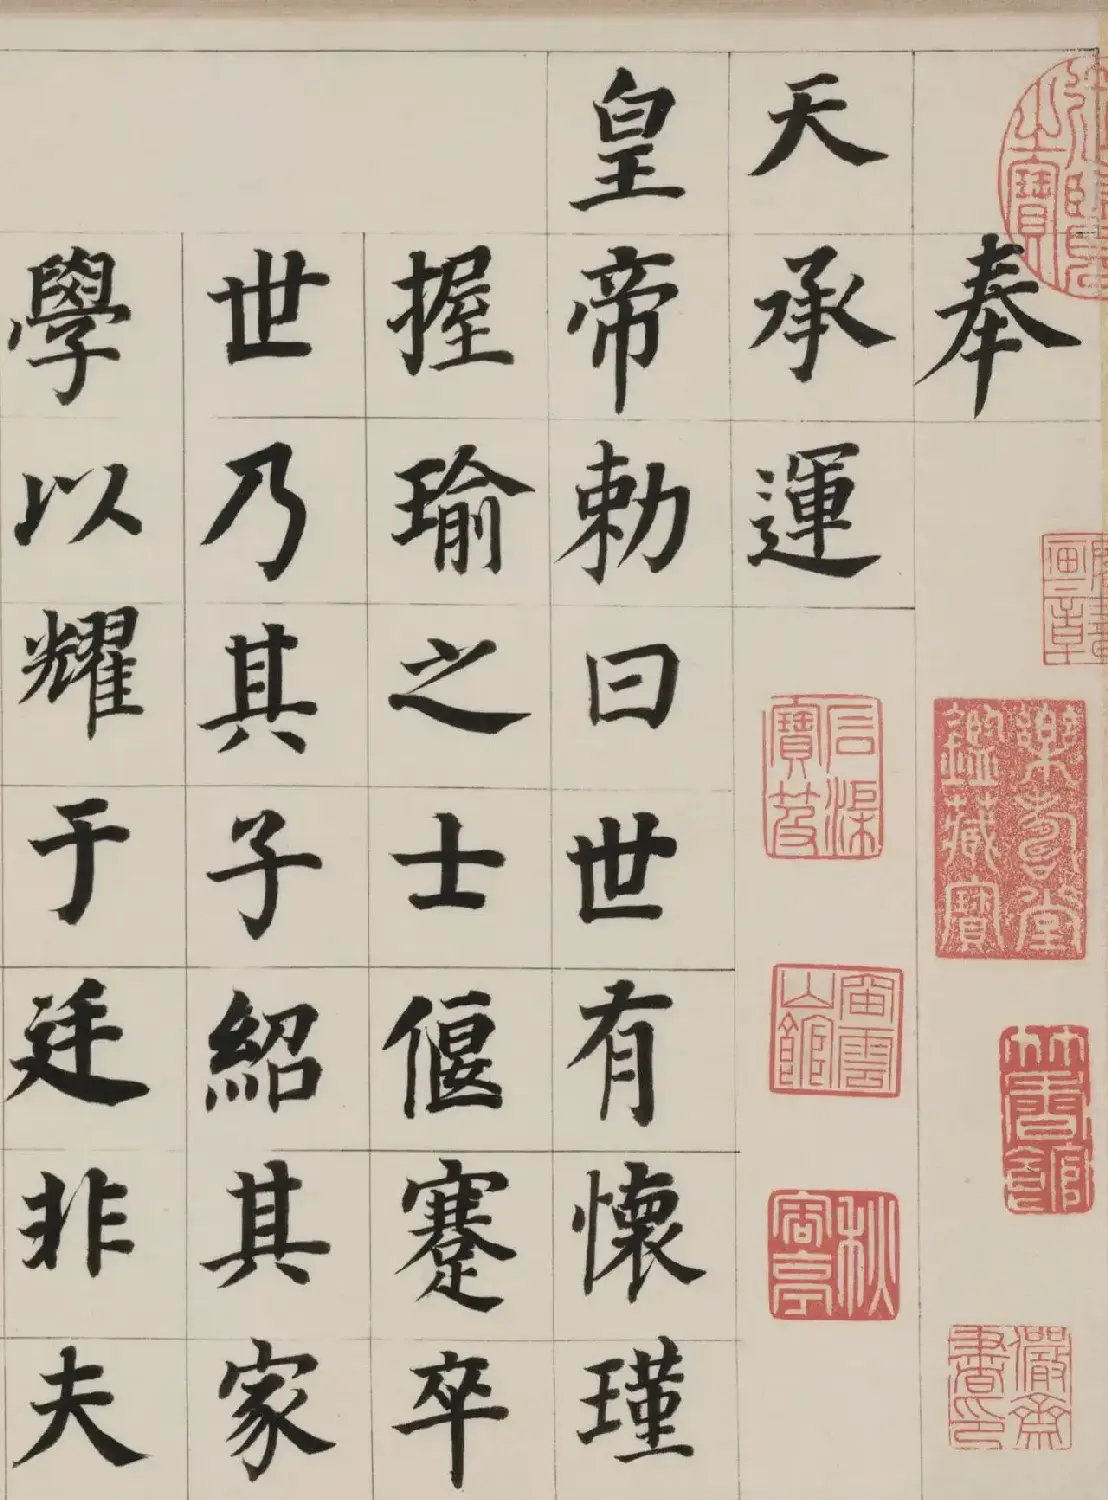 奉
天承運
皇帝勅曰世有懷瑾
握瑜之士偃蹇卒
世乃其子紹其家
學以耀于廷非夫
樂壽堂鑑藏寶
秋
亭